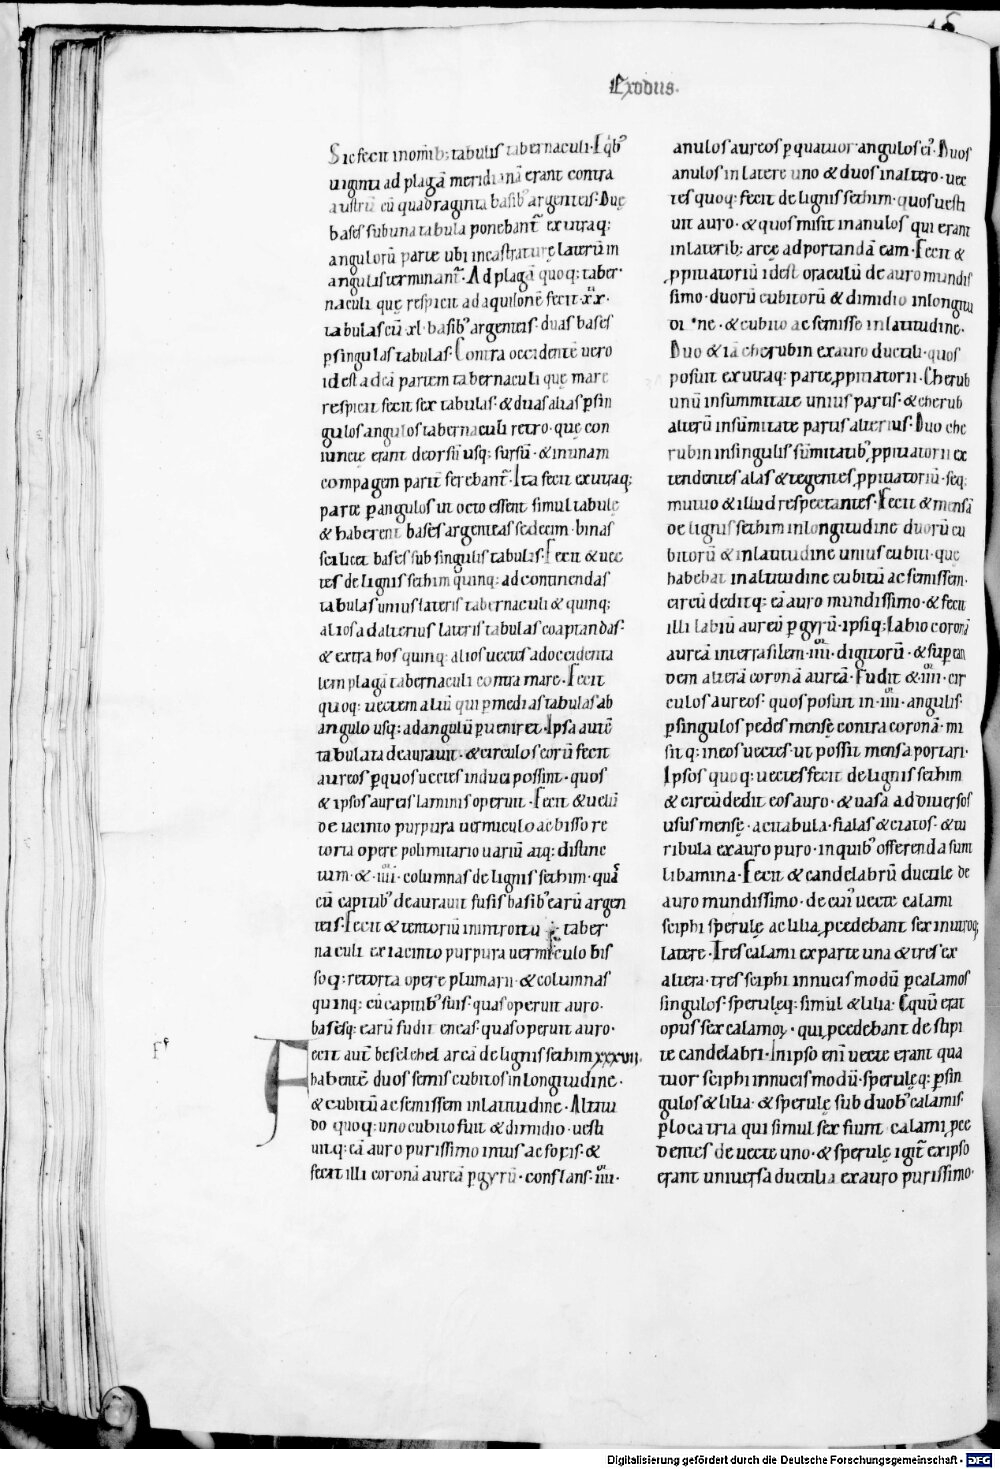 Exodus.
Sic fecit in om̄ib; tabulis tabernaculi. E q̇b᾽
uiginti ad plagā meridianā erant contra
austrū cū quadraginta basib᾽ argenteis. Duę
bases sub una tabula ponebant᷑ ex utraq;
angulorū parte ubi incastraturę laterū in
angulis terminant᷑. Ad plagā quoq; taber-
naculi quę respicit ad aquilonē fecit .xx.
tabulas cū .xl. basib᾽ argenteis. duas bases
ꝑ singulas tabulas. Contra occidentē uero
id est ad eā partem tabernaculi quę mare
respicit fecit sex tabulas. & duas alias ꝑ sin
gulos angulos tabernaculi retro. quę con
iunctę erant deorsū usq; sursū. & in unam
compagem parit᷑ ferebant᷑. Ita fecit ex utraq;
parte ꝑ angulos ut octo essent simul tabulę
& haberent bases argenteas sedecim. binas
scilicet bases sub singulis tabulis. Fecit & uec
tes de lignis sethim quinq; ad continendas
tabulas unius lateris tabernaculi & quinq;
alios ad alterius lateris tabulas coaptandas.
& extra hos quinq; alios uectes ad occidenta
lem plagā tabernaculi contra mare. Fecit
quoq; uectem aliū qui ꝑ medias tabulas ab
angulo usq; ad angulū ꝑueniret. Ipsa autē
tabulata deaurauit. & circulos eorū fecit
aureos ꝑ quos uectes induci possint. quos
& ipsos aureis laminis operuit. Fecit & uelū
de iacinto purpura uermiculo ac bisso re
torta opere polimitario uariū atq; distinc
tum. & .iiii. columnas de lignis sethim. quas
cū capitib᾽ deaurauit fusis basib᾽ earū argen
teis. Fecit & tentoriū in introitu taber
naculi ex iacinto purpura uermiculo bis
soq; retorta opere plumarii. & columnas
quinq; cū capitib᾽ suis. quas operuit auro.
basesq; earū fudit eneas. quas operuit auro.
Fecit aut᷑ beselehel arcā de lignis sethim xxxvii.
habentē duos semis cubitos in longitudine.
& cubitū ac semissem in latitudine. Altitu
do quoq; uno cubito fuit & dimidio. uesti
uitq; eā auro purissimo intus ac foris. &
fecit illi coronā aureā ꝑ gyrū. conflans .iiii.
anulos aureos ꝑ quatuor angulos ei᾽. Duos
anulos in latere uno & duos in altero. uec
tes quoq; fecit de lignis sethim. quos uesti
uit auro. & quos misit in anulos qui erant
in laterib; arcę ad portandā eam. Fecit &
ꝓpitiatoriū id est oraculū de auro mundis
simo. duorū cubitorū & dimidio in longitu
di ne. & cubito ac semisse in latitudine.
Duo & iā cherubin ex auro ductili. quos
posuit ex utraq; parte ꝓpitiatorii. Cherub
unū in summitate unius partis. & cherub
alterū in sūmitate partis alterius. Duo che
rubin in singulis sūmitatib᾽ ꝓpitiatorii ex
tendentes alas & tegentes ꝓpitiatoriū. seq;
mutuo & illud respectantes. Fecit & mensā
de lignis sethim in longitudine duorū cu
bitorū & in latitudine unius cubiti. quę
habebat in altitudine cubitū ac semissem.
circūdeditq; eā auro mundissimo. & fecit
illi labiū aureū ꝑ gyrū. ipsiq; labio coronā
aureā interrasilem .iiii. digitorū. & sup̄ ean
dem alterā coronā aureā. Fudit & .iiii. cir
culos aureos. quos posuit in .iiii. angulis.
ꝑ singulos pedes mensę contra coronā. mi
sitq; in eos uectes. ut possit mensa portari.
Ipsos quoq; uectes fecit de lignis sethim
& circūdedit eos auro. & uasa ad diuersos
usus mensę. acitabula. fialas & ciatos. & tu
ribula ex auro puro. in quib᾽ offerenda sunt
libamina. Fecit & candelabrū ductile de
auro mundissimo. de cui᾽ uecte calami
sciphi sperulę ac lilia ꝓcedebant sex in utroq;
latere. Tres calami ex parte una & tres ex
altera. tres sciphi in nucis modū ꝑ calamos
singulos. sperulęq; simul & lilia. Equū erat
opus sex calamoꝝ. qui ꝓcedebant de stipi
te candelabri. In ipso eni uecte erant qua
tuor sciphi in nucis modū. sperulęq; ꝑ sin
gulos & lilia. & sperulę sub duob᾽ calamis.
ꝑ loca tria qui simul sex fiunt calami ꝓce
dentes de uecte uno. & sperulę igit᷑ ex ipso
erant uniuersa ductilia ex auro purissimo.
Digitalisierung gefördert durch die Deutsche Forschungsgemeinschaft - DFG